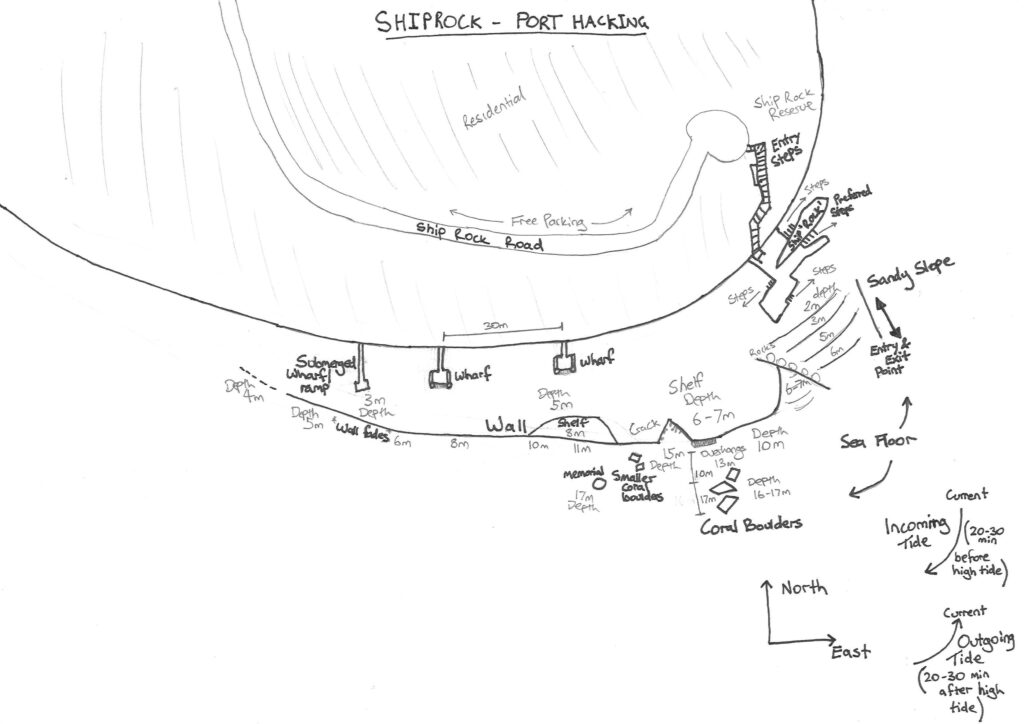 SHIPROCK - PORT HACKING
Residential
Ship Rock
Reserve
Entry
Steps
Steps
Prefered
Steps
Ship 'Rock'
Free Parking
Ship Rock Road
Steps
Steps
Sandy Slope
depth
2m
3m
5m
6m
6-7m
Entry &
Exit
Point
Rocks
30m
Submerged
Wharf
ramp
Wharf
Wharf
Depth
4m
Depth
5m
3m
Depth
Depth
5m
Shelf
Depth
6-7m
Wall fades
6m
8m
Wall
Shelf
8m
10m
11m
Crack
15m
Depth
Overhangs
13m
Depth
10m
Sea Floor
memorial
17m
Depth
Smaller
coral
boulders
10m
17m
Depth
16-17m
Coral Boulders
Current
Incoming
Tide
(20-30
min
before
high tide)
North
East
Current
Outgoing
Tide
(20-30 min
after high
tide)